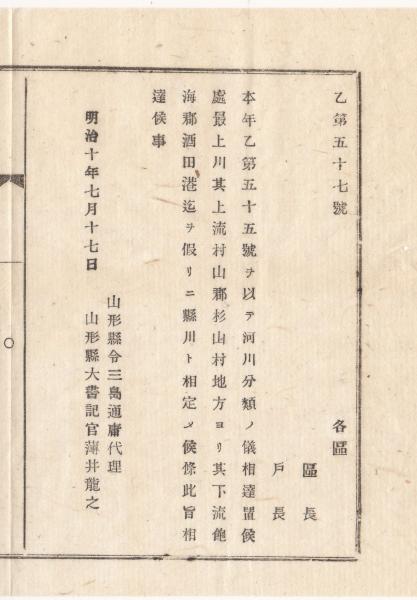 乙第五十七號
各區
區長
戸長
本年乙第五十五號ヲ以テ河川分類ノ儀相達置候
處最上川其上流村山郡杉山村地方ヨリ其下流飽
海郡酒田港迄ヲ假リニ縣川ト相定メ候條此旨相
達候事
明治十年七月十七日
山形縣令三島通庸代理
山形縣大書記官薄井龍之